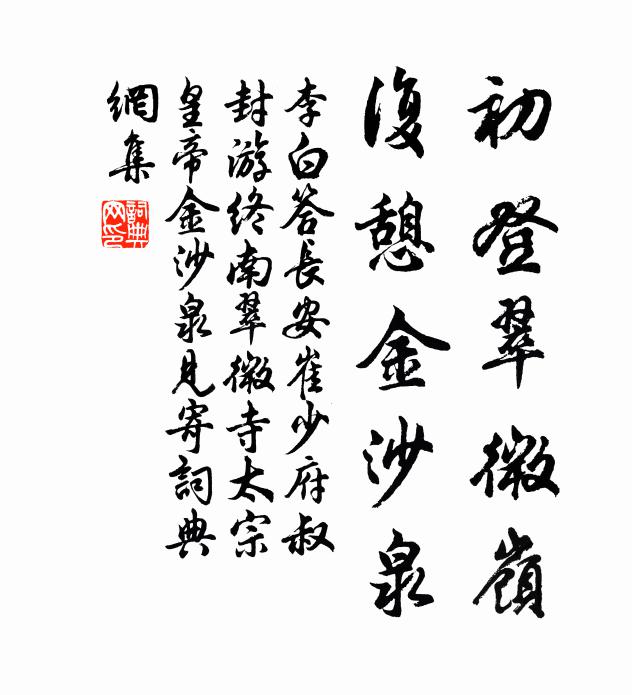 初登翠微嶺
復憩金沙泉
李白答長安崔少府叔
封游終南翠微寺太宗
皇帝金沙泉見寄詞典
網集
詞典
网印